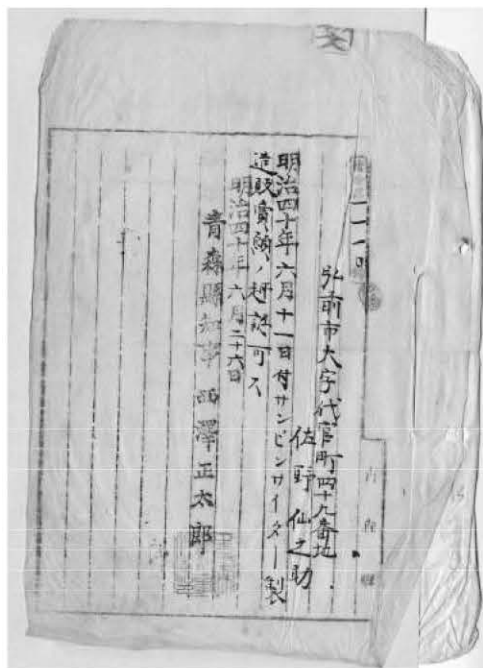 弘前市大字代官町四十九番地
佐野仙之助
明治四十年六月十一日付サンピンサイダー製
造販賣願ノ趣許可ス
明治四十年六月二十六日
青森縣知事西澤正太郎
青森縣